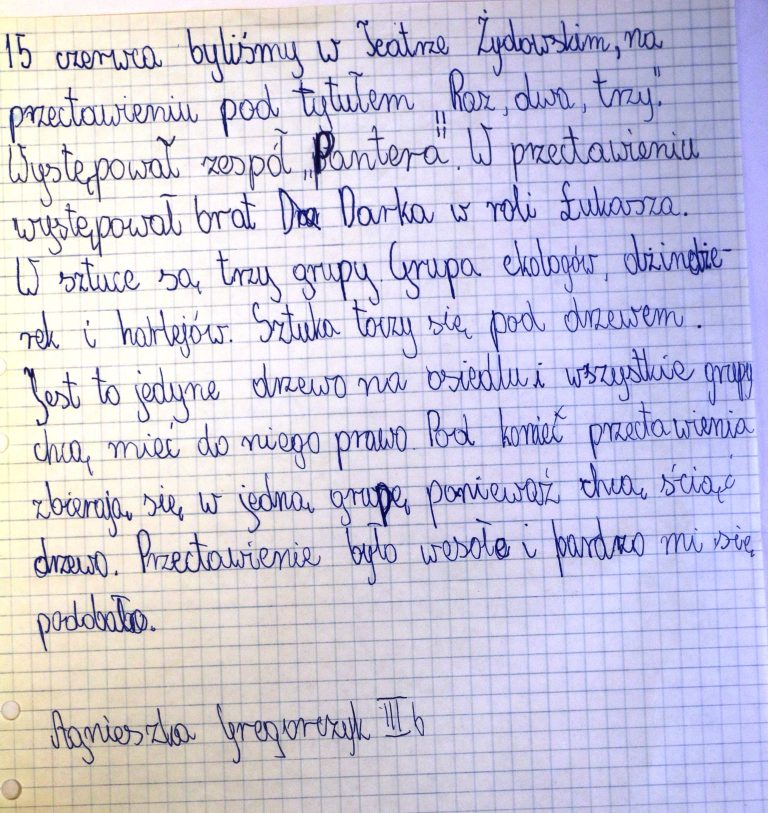 15 czerwca byliśmy w Teatrze Żydowskim, na
przectawieniu pod tytułem „Raz, dwa, trzy".
Występował zespół „Pantera". W przectawieniu
występował brat Darka w roli Łukasza.
W sztuce są trzy grupy. Grupa ekologów, dżindże-
rek i harlejów. Sztuka toczy się pod drzewem.
Jest to jedyne drzewo na osiedlu i wszystkie grupy
chcą mieć do niego prawo. Pod konieć przectawienia
zbierają się w jedną grupę ponieważ chcą ściąć
drzewo. Przectawienie było wesołe i bardzo mi się
podobało.
Agnieszka Gregorczyk III b